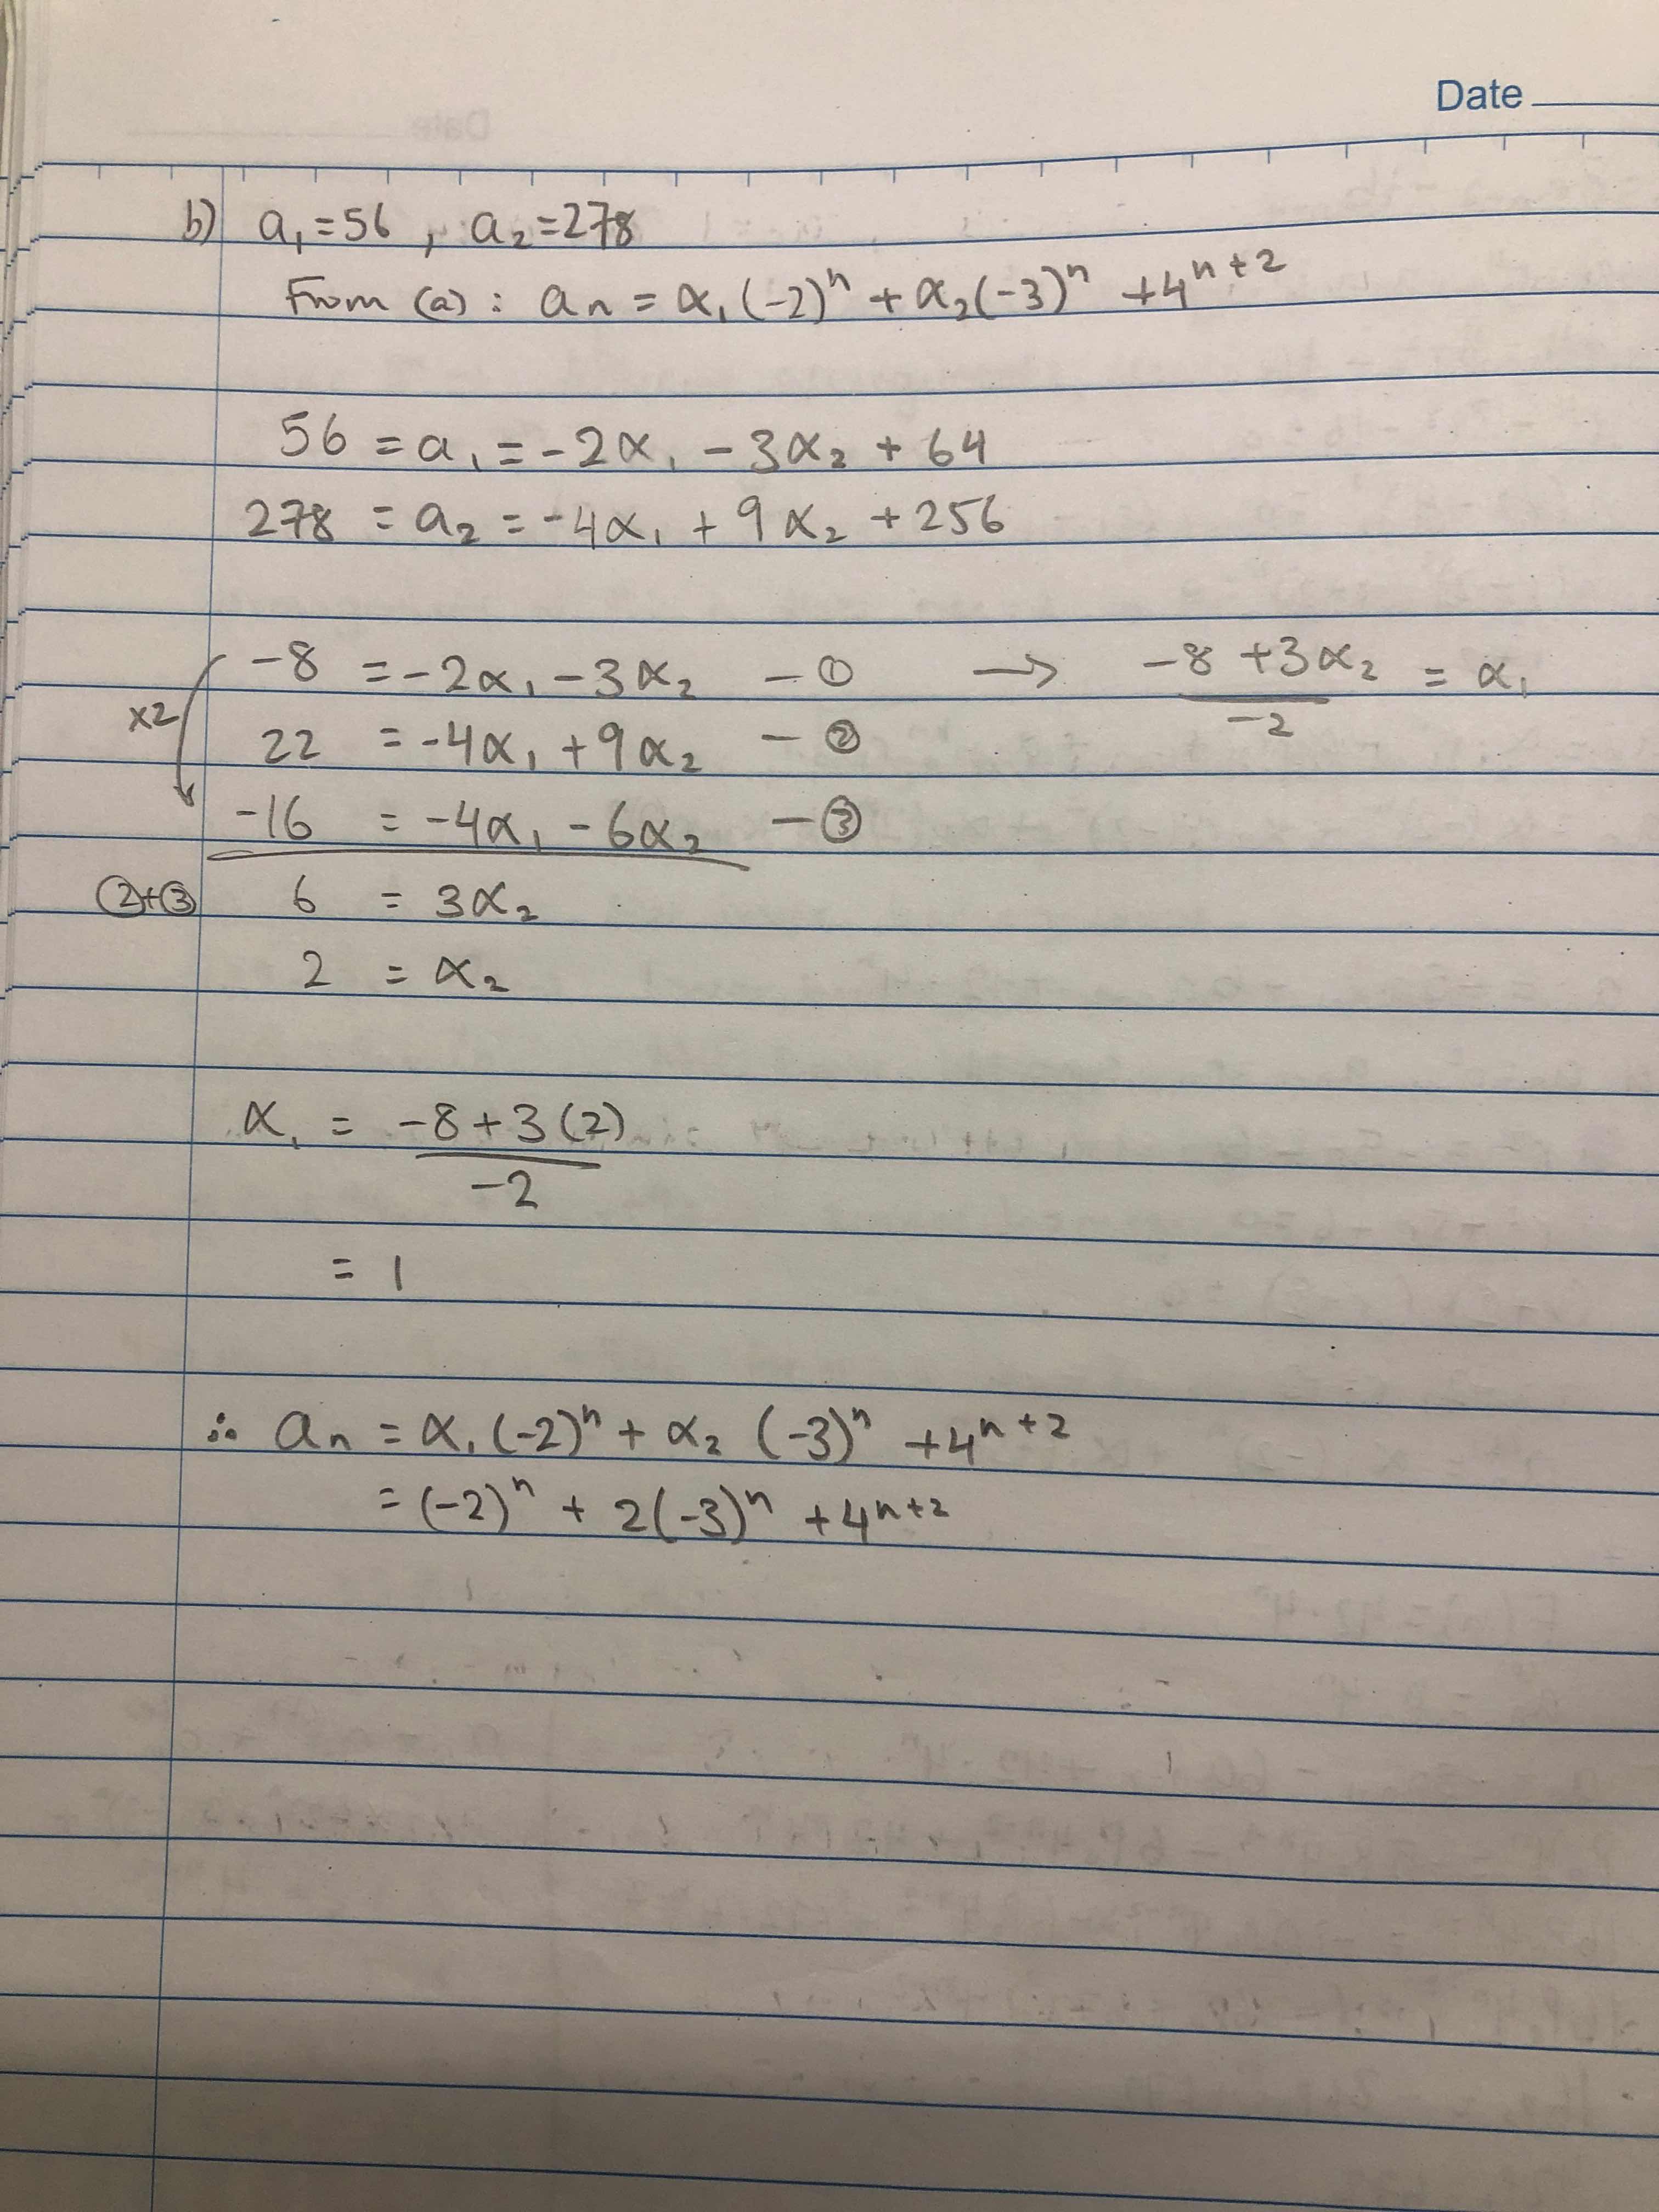 Date
b) a₁ = 56 , a₂ = 278
From (a) : aₙ = α₁(-2)ⁿ + α₂(-3)ⁿ + 4ⁿ⁺²
56 = a₁ = -2α₁ - 3α₂ + 64
278 = a₂ = -4α₁ + 9α₂ + 256
-8 = -2α₁ - 3α₂ - ① → (-8 + 3α₂)/-2 = α₁
x2
22 = -4α₁ + 9α₂ - ②
-16 = -4α₁ - 6α₂ - ③
②+③ 6 = 3α₂
2 = α₂
α₁ = (-8 + 3(2))/-2
= 1
∴ aₙ = α₁(-2)ⁿ + α₂ (-3)ⁿ + 4ⁿ⁺²
= (-2)ⁿ + 2(-3)ⁿ + 4ⁿ⁺²